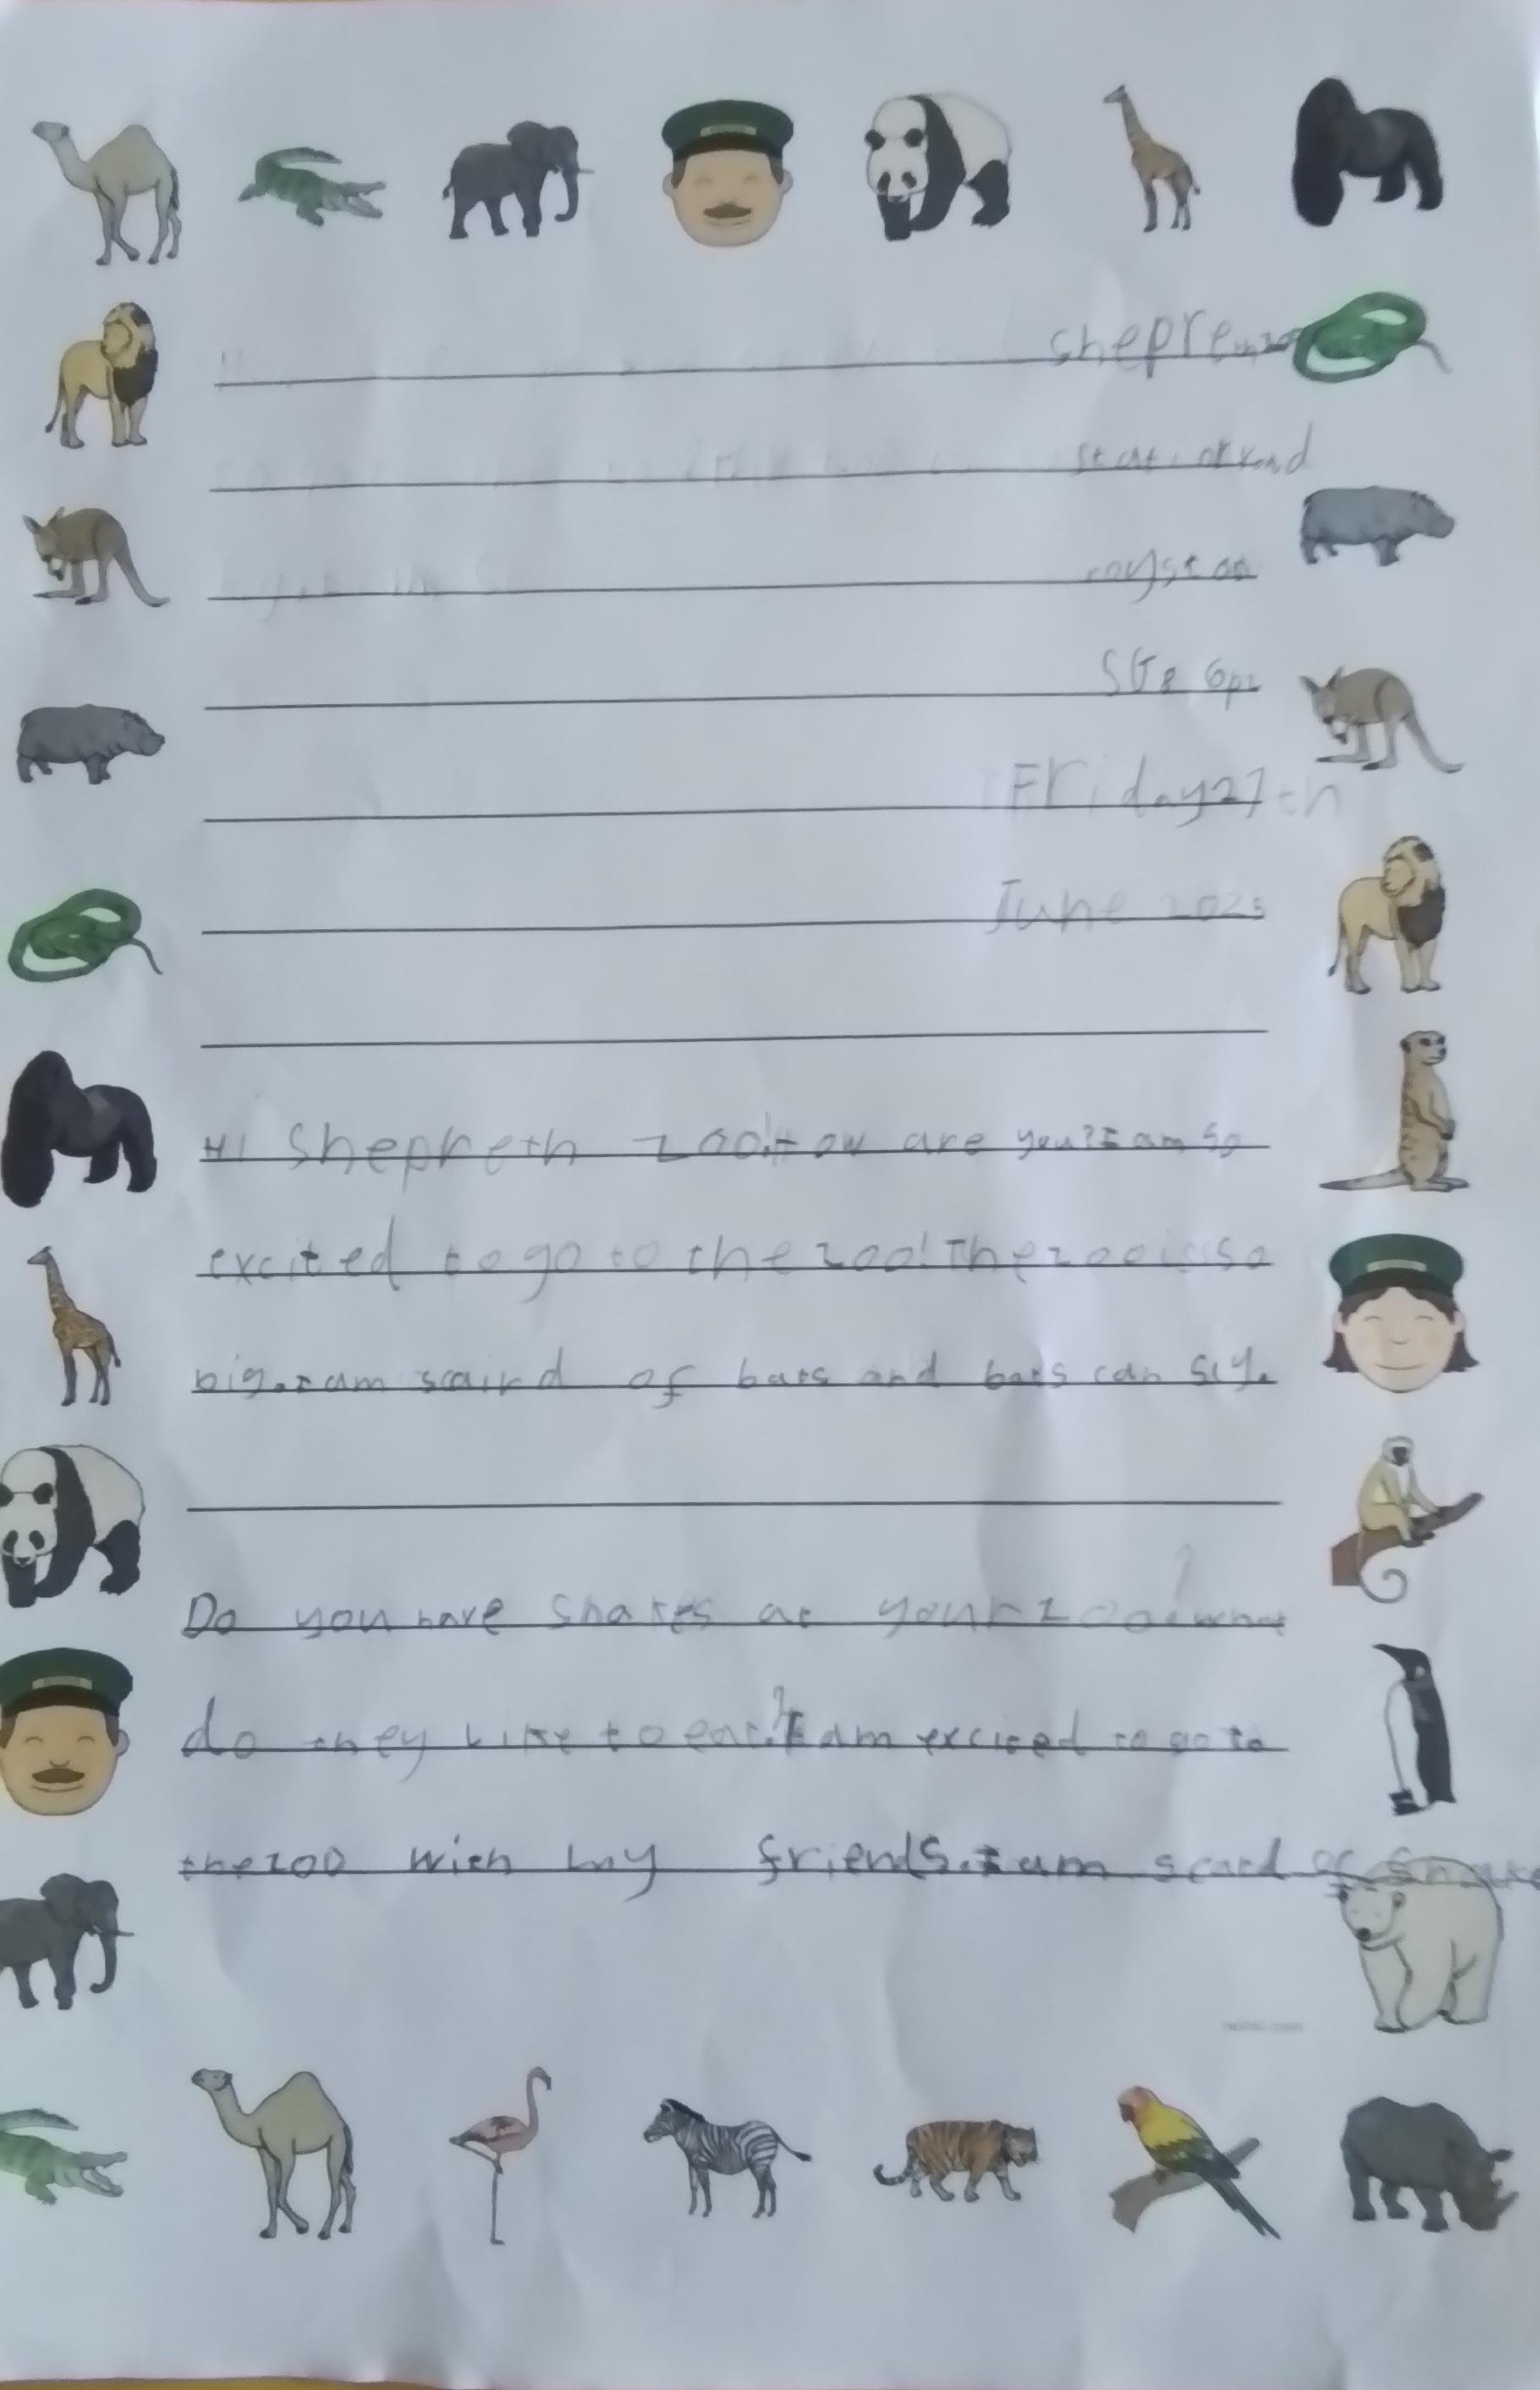 shepreth zoo
station road
royston
SG8 6pz
Friday 27th
June 2025
Hi Shepreth zoo! How are you? I am so
excited to go to the zoo! The zoo is so
big. I am scaird of bats and bats can fly.
Do you have snakes at your zoo? what
do they like to eat? I am excited to go to
the zoo with my friends. I am scard of snake